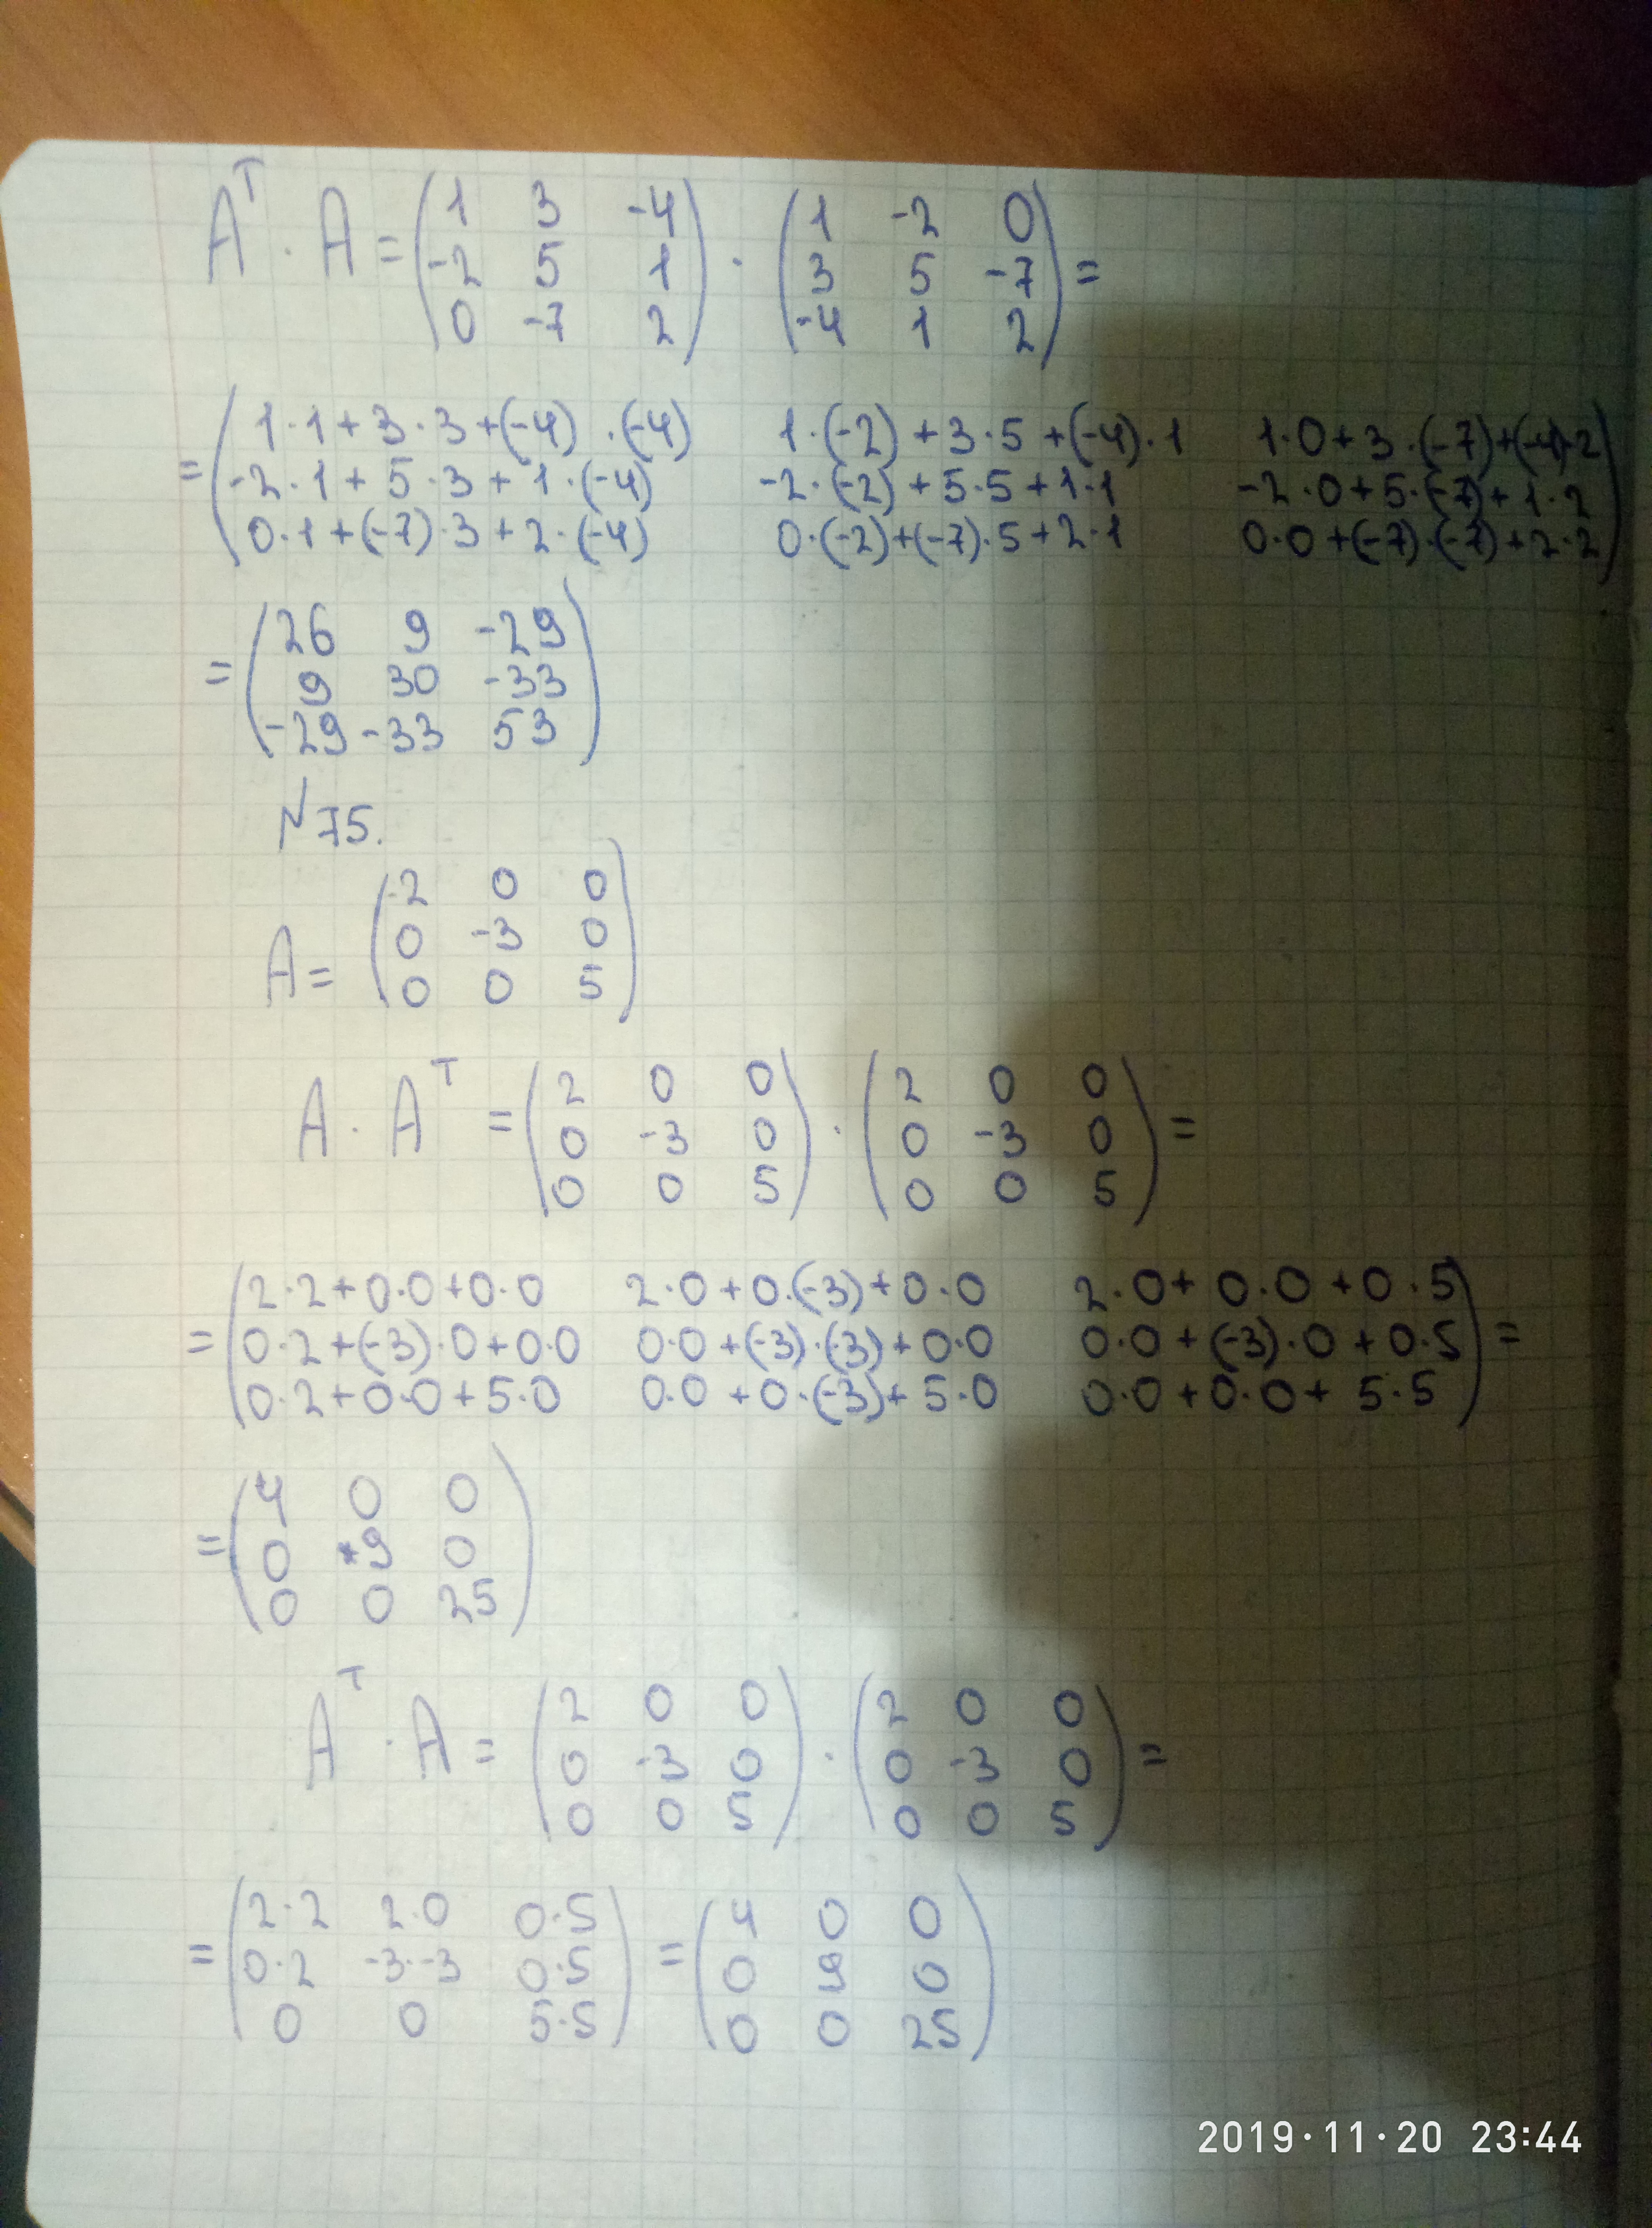 Aᵀ · A = ( 1 3 -4 ) · ( 1 -2 0 ) =
( -2 5 1 ) ( 3 5 -7 )
( 0 -7 2 ) ( -4 1 2 )
= ( 1·1+3·3+(-4)·(-4) 1·(-2)+3·5+(-4)·1 1·0+3·(-7)+(-4)·2 )
( -2·1+5·3+1·(-4) -2·(-2)+5·5+1·1 -2·0+5·(-7)+1·2 )
( 0·1+(-7)·3+2·(-4) 0·(-2)+(-7)·5+2·1 0·0+(-7)·(-7)+2·2 )
= ( 26 9 -29 )
( 9 30 -33 )
( -29 -33 53 )
№75.
A = ( 2 0 0 )
( 0 -3 0 )
( 0 0 5 )
A · Aᵀ = ( 2 0 0 ) · ( 2 0 0 ) =
( 0 -3 0 ) ( 0 -3 0 )
( 0 0 5 ) ( 0 0 5 )
= ( 2·2+0·0+0·0 2·0+0·(-3)+0·0 2·0+0·0+0·5 )
( 0·2+(-3)·0+0·0 0·0+(-3)·(-3)+0·0 0·0+(-3)·0+0·5 ) =
( 0·2+0·0+5·0 0·0+0·(-3)+5·0 0·0+0·0+5·5 )
= ( 4 0 0 )
( 0 9 0 )
( 0 0 25 )
Aᵀ · A = ( 2 0 0 ) · ( 2 0 0 ) =
( 0 -3 0 ) ( 0 -3 0 )
( 0 0 5 ) ( 0 0 5 )
= ( 2·2 2·0 0·5 ) = ( 4 0 0 )
( 0·2 -3·-3 0·5 ) ( 0 9 0 )
( 0 0 5·5 ) ( 0 0 25 )
2019·11·20 23:44